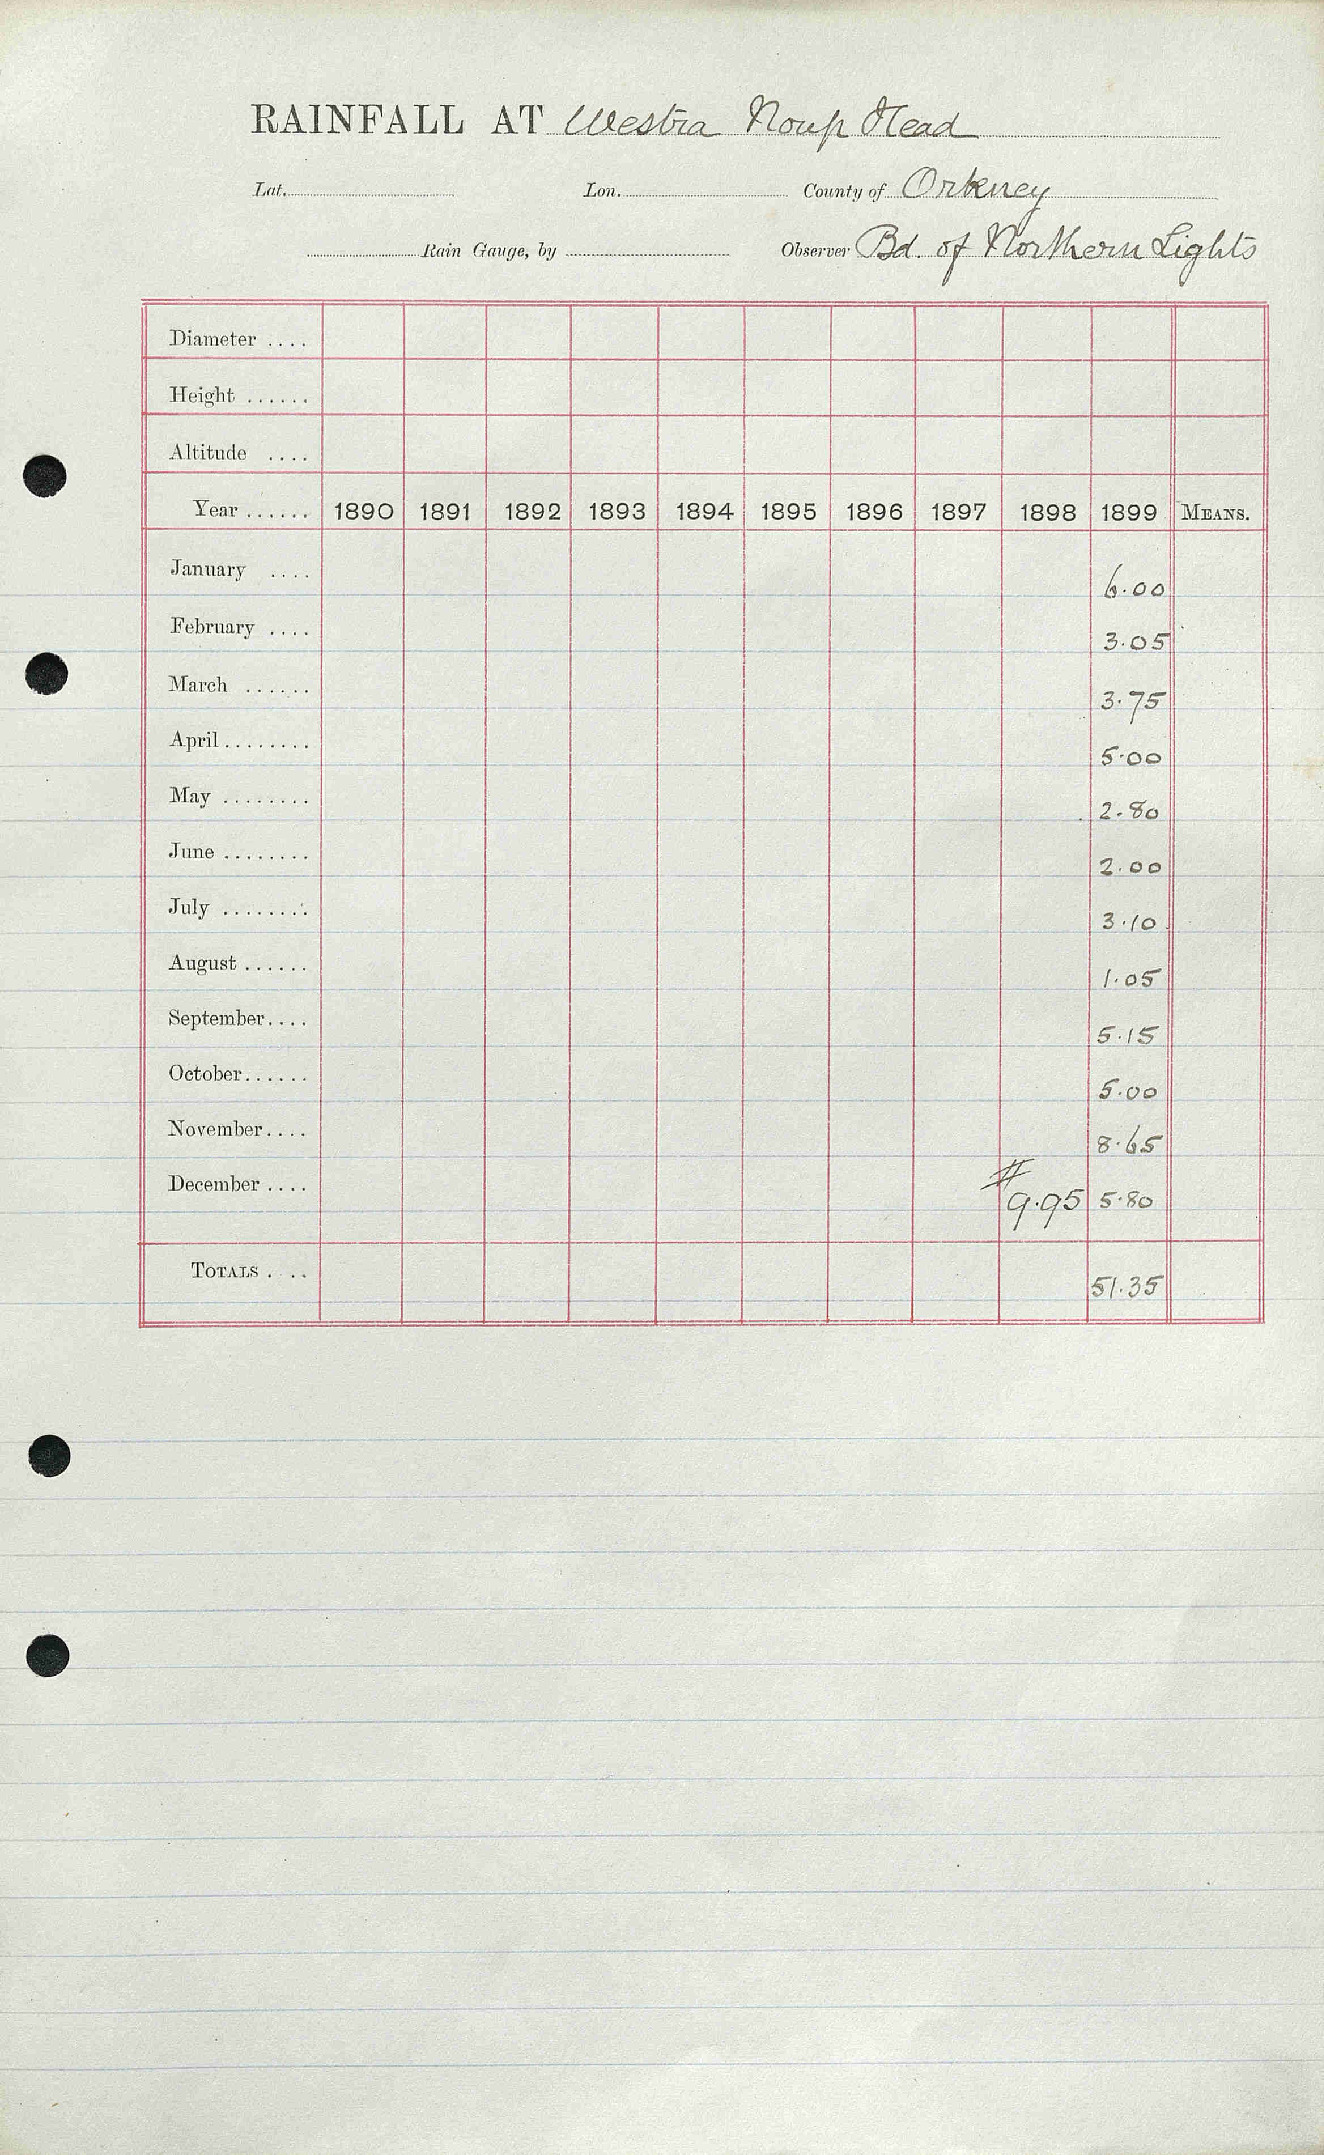 RAINFALL AT Westra Noup Head
Lat. Lon. County of Orkney
Rain Gauge, by Observer Bd. of Northern Lights
Diameter ....
Height ......
Altitude ....
Year ...... 1890 1891 1892 1893 1894 1895 1896 1897 1898 1899 MEANS.
January .... 6.00
February .... 3.05
March ...... 3.75
April ........ 5.00
May ........ 2.80
June ........ 2.00
July ........ 3.10
August ...... 1.05
September.... 5.15
October...... 5.00
November.... 8.65
#
December .... 9.95 5.80
TOTALS .... 51.35